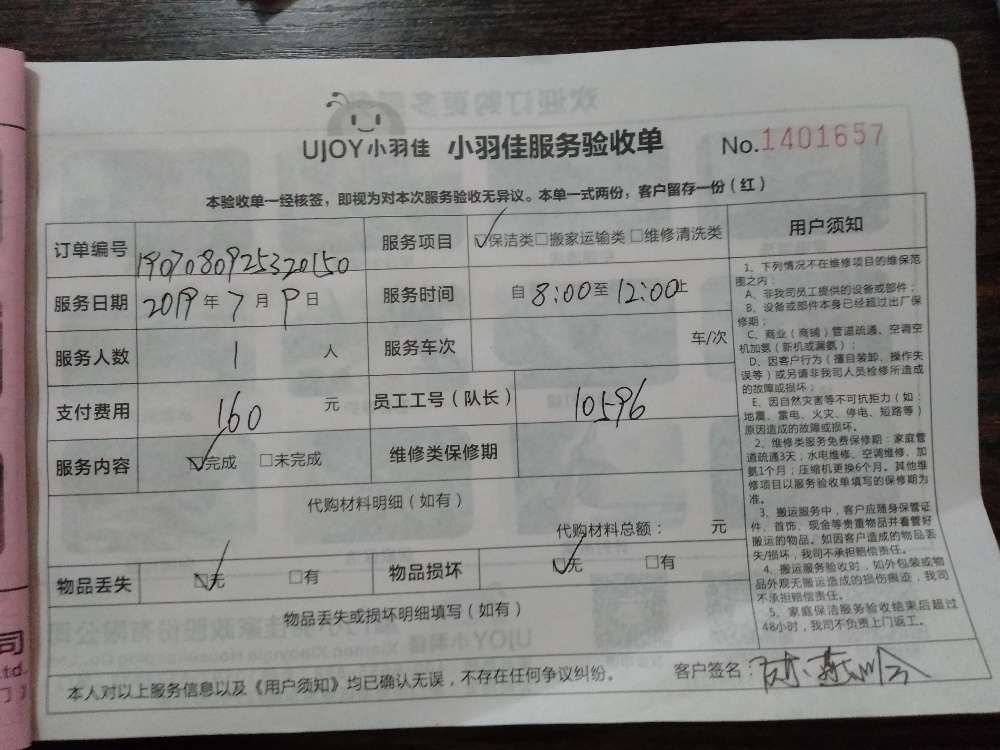 UJOY小羽佳 小羽佳服务验收单 No.1401657
本验收单一经核签，即视为对本次服务验收无异议。本单一式两份，客户留存一份（红）
订单编号 1907080925320150 服务项目 ☑保洁类□搬家运输类□维修清洗类
服务日期 2019年7月9日 服务时间 自8:00至12:00止
服务人数 1 人 服务车次 车/次
支付费用 160 元 员工工号（队长） 10596
服务内容 ☑完成 □未完成 维修类保修期
代购材料明细（如有）
代购材料总额： 元
物品丢失 ☑无 □有 物品损坏 ☑无 □有
物品丢失或损坏明细填写（如有）
本人对以上服务信息以及《用户须知》均已确认无误，不存在任何争议纠纷。 客户签名：
用户须知
1、下列情况不在维修项目的维保范
围之内：
A、非我司员工提供的设备或部件；
B、设备或部件本身已经超过出厂保
修期；
C、商业（商铺）管道疏通、空调空
机加氨（新机或漏氨）；
D、因客户行为（擅自装卸、操作失
误等）或另请非我司人员检修所造成
的故障或损坏；
E、因自然灾害等不可抗拒力（如：
地震、雷电、火灾、停电、短路等）
原因造成的故障或损坏。
2、维修类服务免费保修期：家庭管
道疏通3天；水电维修、空调维修、加
氨1个月；压缩机更换6个月。其他维
修项目以服务验收单填写的保修期为
准。
3、搬运服务中，客户应随身保管证
件、首饰、现金等贵重物品并看管好
搬运的物品。如因客户造成的物品丢
失/损坏，我司不承担赔偿责任。
4、搬运服务验收时，如外包装或物
品外观无搬运造成的损伤痕迹，我司
不承担赔偿责任。
5、家庭保洁服务验收结束后超过
48小时，我司不负责上门返工。
司
td.
门）